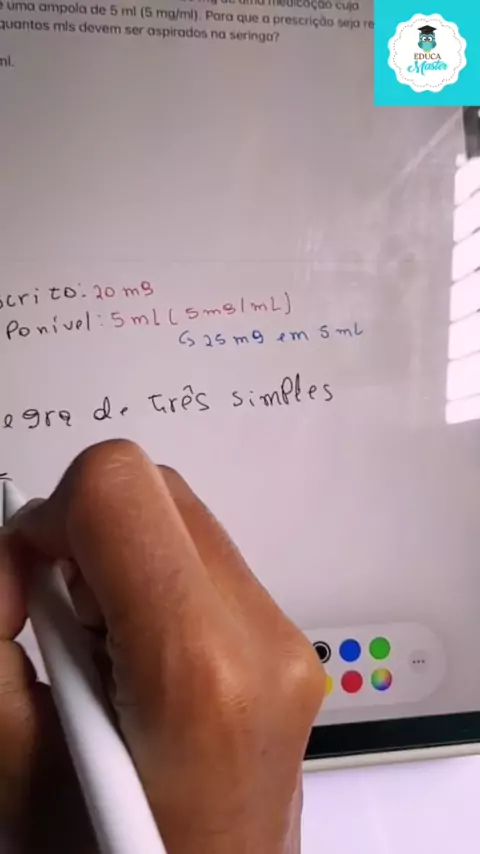 uma ampola de 5 ml (5 mg/ml). Para que a prescrição seja re
quantos mls devem ser aspirados na seringa?
ml.
EDUCA
Master
crito: 20 mg
ponível: 5 ml (5mg/mL)
↳ 25 mg em 5 mL
egra de três simples